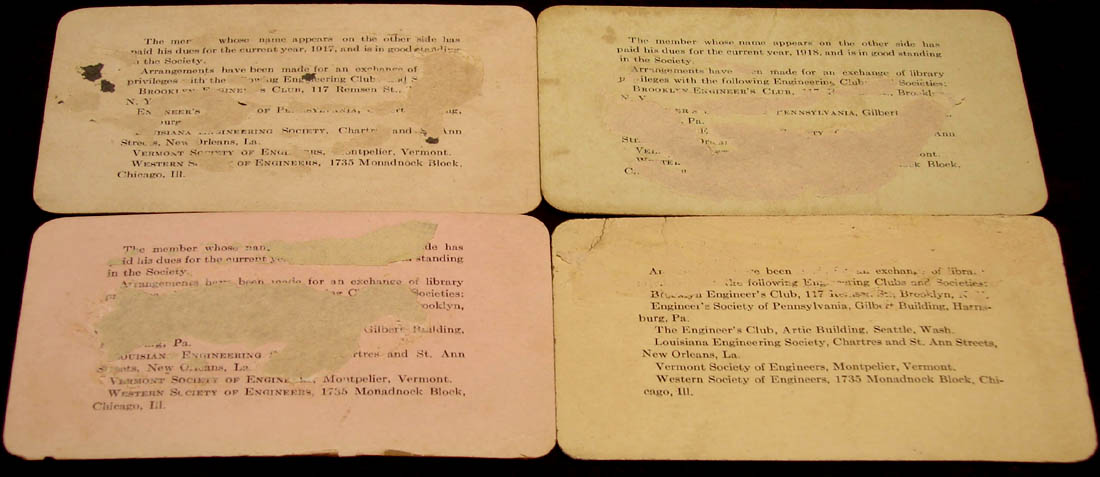 The whose name appears on the other side has
paid his dues for the current year, 1917, and is in good standing
in the Society.
Arrangements have been made for an exchange of
privileges with the Engineering Club
BROOKLYN 117 Remsen St.,
N. Y
OF PENNSYLVANIA,
LOUISIANA ENGINEERING SOCIETY, Chartres and Ann
Streets, New Orleans, La.
VERMONT SOCIETY OF Montpelier, Vermont.
WESTERN OF ENGINEERS, 1735 Monadnock Block,
Chicago, Ill.
The member whose name appears on the other side has
paid his dues for the current year, 1918, and is in good standing
in the Society.
Arrangements have been made for an exchange of library
privileges with the following Engineering Clubs Societies:
BROOKLYN ENGINEER'S CLUB, 117
PENNSYLVANIA, Gilbert
, Pa.
Ann
Block,
The member whose side has
paid his dues for the current standing
in the Society.
Arrangements have been made for an exchange of library
Societies:
Brooklyn,
Gilbert Building,
Pa.
LOUISIANA ENGINEERING Chartres and St. Ann
Streets, New Orleans, La
VERMONT SOCIETY OF Montpelier, Vermont.
WESTERN SOCIETY OF ENGINEERS, 1735 Monadnock Block,
Chicago, Ill.
been an exchange of
the following Engineering Clubs and Societies:
Brooklyn Engineer's Club, 117 Remsen St., Brooklyn,
Engineer's Society of Pennsylvania, Gilbert Building, Harris-
burg, Pa.
The Engineer's Club, Artic Building, Seattle, Wash.
Louisiana Engineering Society, Chartres and St. Ann Streets,
New Orleans, La.
Vermont Society of Engineers, Montpelier, Vermont.
Western Society of Engineers, 1735 Monadnock Block, Chi-
cago, Ill.